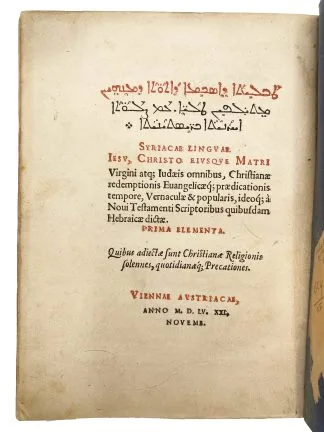 SYRIACAE LINGVAE
IESV, CHRISTO EIVSQVE MATRI
Virgini atq; Iudæis omnibus, Christianæ
redemptionis Euangelicæq; prædicationis
tempore, Vernaculæ & popularis, ideoq; à
Noui Testamenti Scriptoribus quibusdam
Hebraicæ dictæ.
PRIMA ELEMENTA.
Quibus adiectæ sunt Christianæ Religionis
solennes, quotidianæq; Precationes.
VIENNAE AVSTRIACAE,
ANNO M. D. LV. XXI,
NOVEMB.